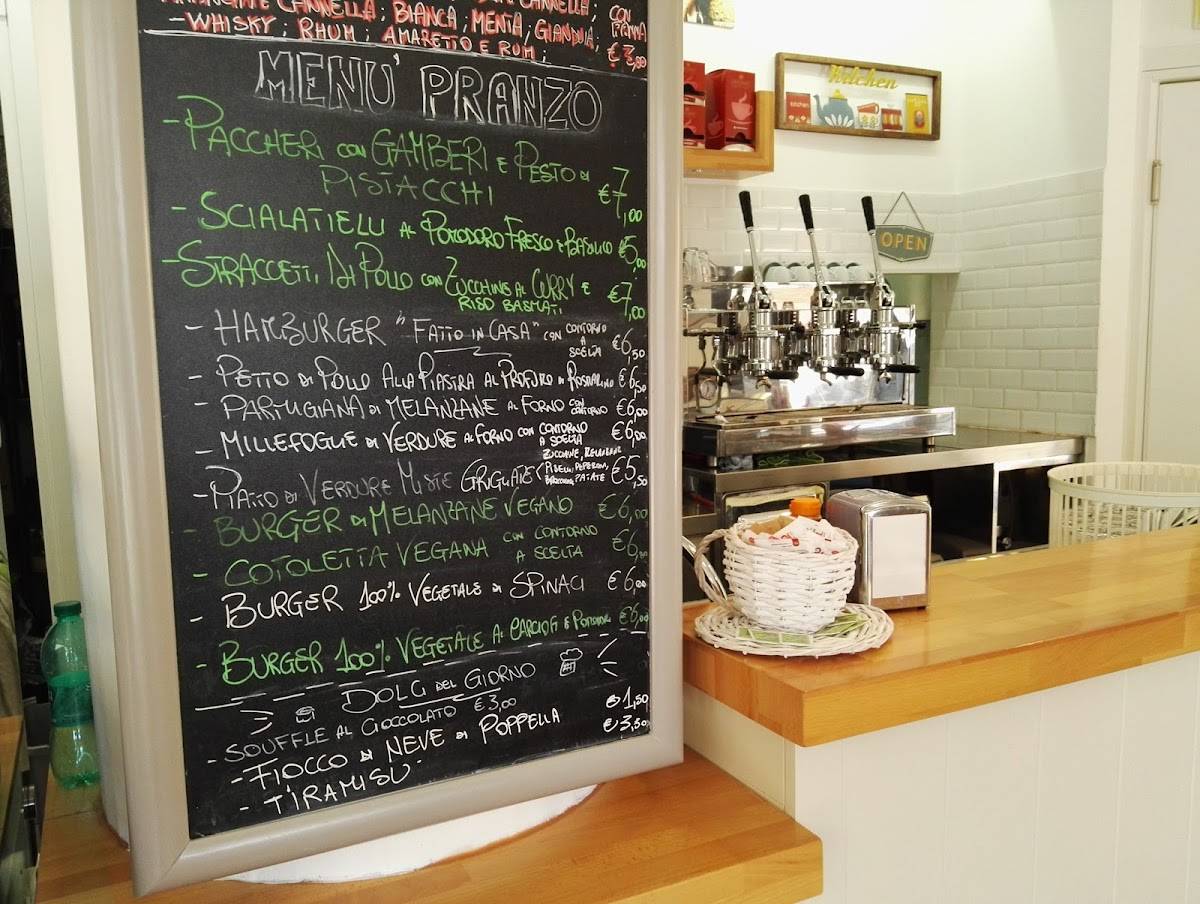 CANNELLA; BIANCA; MENTA; GIANDUIA; CON PANNA
- WHISKY; RHUM; AMARETTO E RUM; € 3,00
MENU' PRANZO
- PACCHERI CON GAMBERI E PESTO DI
PISTACCHI € 7,00
- SCIALATIELLI AL POMODORO FRESCO E BASILICO € 5,00
- STRACCETTI DI POLLO CON ZUCCHINE AL CURRY E
RISO BASMATI € 7,00
- HAMBURGER "FATTO IN CASA" CON CONTORNO A SCELTA € 6,50
- PETTO DI POLLO ALLA PIASTRA AL PROFUMO DI ROSMARINO € 6,50
- PARMIGIANA DI MELANZANE AL FORNO CON CONTORNO € 6,00
- MILLEFOGLIE DI VERDURE AL FORNO CON CONTORNO A SCELTA € 6,00
- PIATTO DI VERDURE MISTE GRIGLIATE (ZUCCHINE, MELANZANE, PEPERONI, PATATE € 5,50
- BURGER DI MELANZANE VEGANO € 6,00
- COTOLETTA VEGANA CON CONTORNO A SCELTA € 6,00
- BURGER 100% VEGETALE DI SPINACI € 6,00
- BURGER 100% VEGETALE AI CARCIOFI E € 6,00
DOLCI DEL GIORNO
- SOUFFLE AL CIOCCOLATO € 3,00 € 1,50
- FIOCCO DI NEVE DI POPPELLA € 3,50
- TIRAMISU'
Kitchen
OPEN